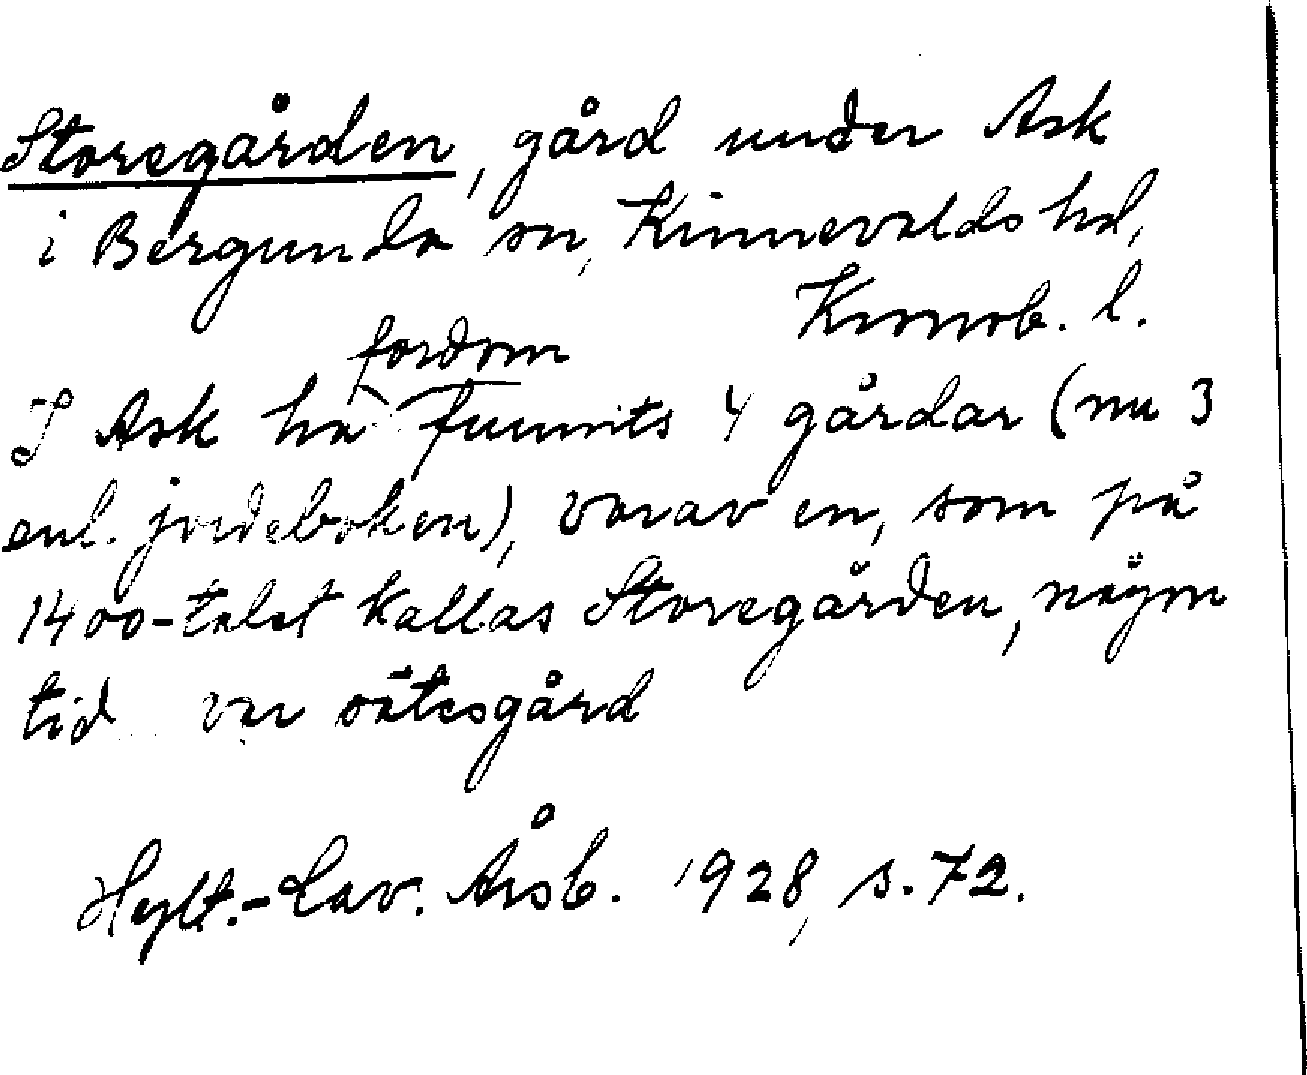 Storegården, gård under Ask
i Bergunda sn, Kinnevalds hd,
Kronob. l.
fordom
I Ask ha funnits 4 gårdar (nu 3
enl. jordeboken), varav en, som på
1400-talet kallas Storegården, någon
tid var sätesgård
Hylt.-Cav. Årsb. 1928, s. 72.